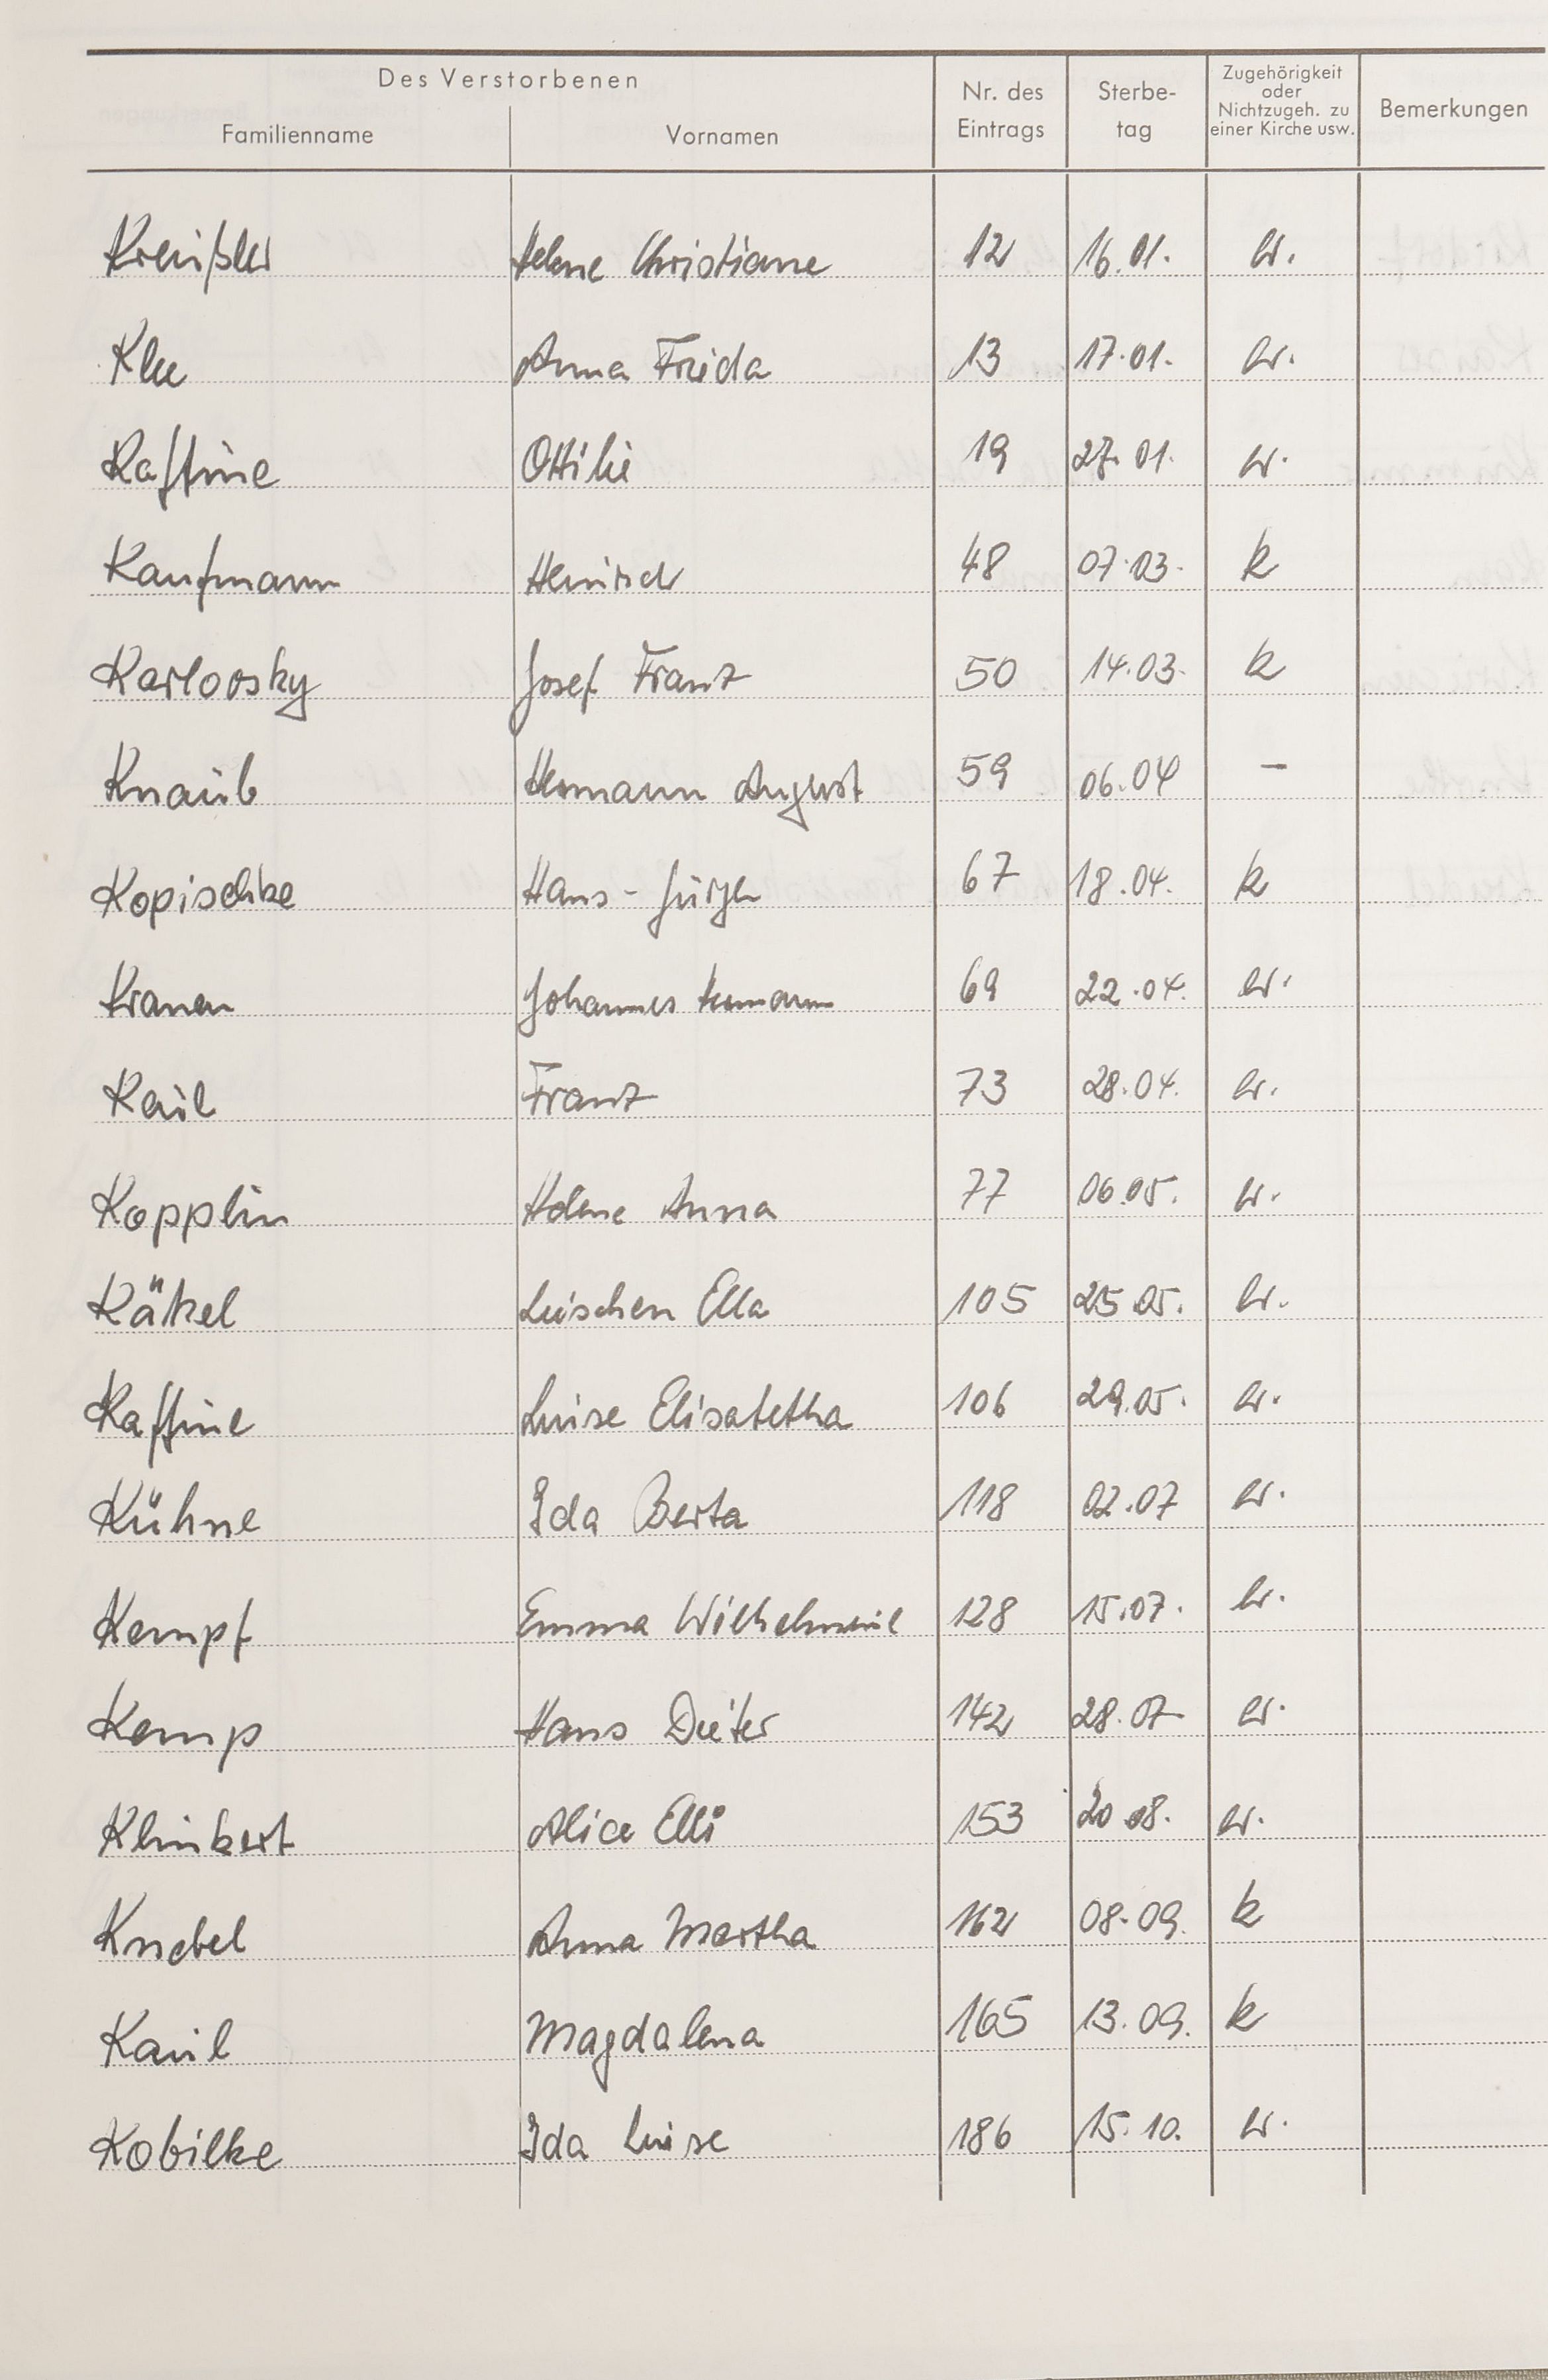 Des Verstorbenen
Familienname Vornamen Nr. des Eintrags Sterbe-tag Zugehörigkeit oder Nichtzugeh. zu einer Kirche usw. Bemerkungen
Kreißler Helene Christiane 12 16.01. ev.
Klee Anna Frieda 13 17.01. ev.
Kaffine Ottilie 19 27.01. ev.
Kaufmann Heinrich 48 07.03. k
Karlovsky Josef Franz 50 14.03. k
Knaub Hermann August 59 06.04 –
Kopischke Hans-Jürgen 67 18.04. k
Kranen Johannes Hermann 69 22.04. ev.
Kail Franz 73 28.04. ev.
Kopplin Helene Anna 77 06.05. ev.
Käkel Luischen Ella 105 25.05. ev.
Kaffine Luise Elisabetha 106 29.05. ev.
Kühne Ida Berta 118 02.07 ev.
Kempf Emma Wilhelmine 128 15.07. ev.
Kemp Hans Dieter 142 28.07 ev.
Klinkert Alice Elli 153 20.08. ev.
Knebel Anna Martha 162 08.09. k
Kail Magdalena 165 13.09. k
Kobilke Ida Luise 186 15.10. ev.